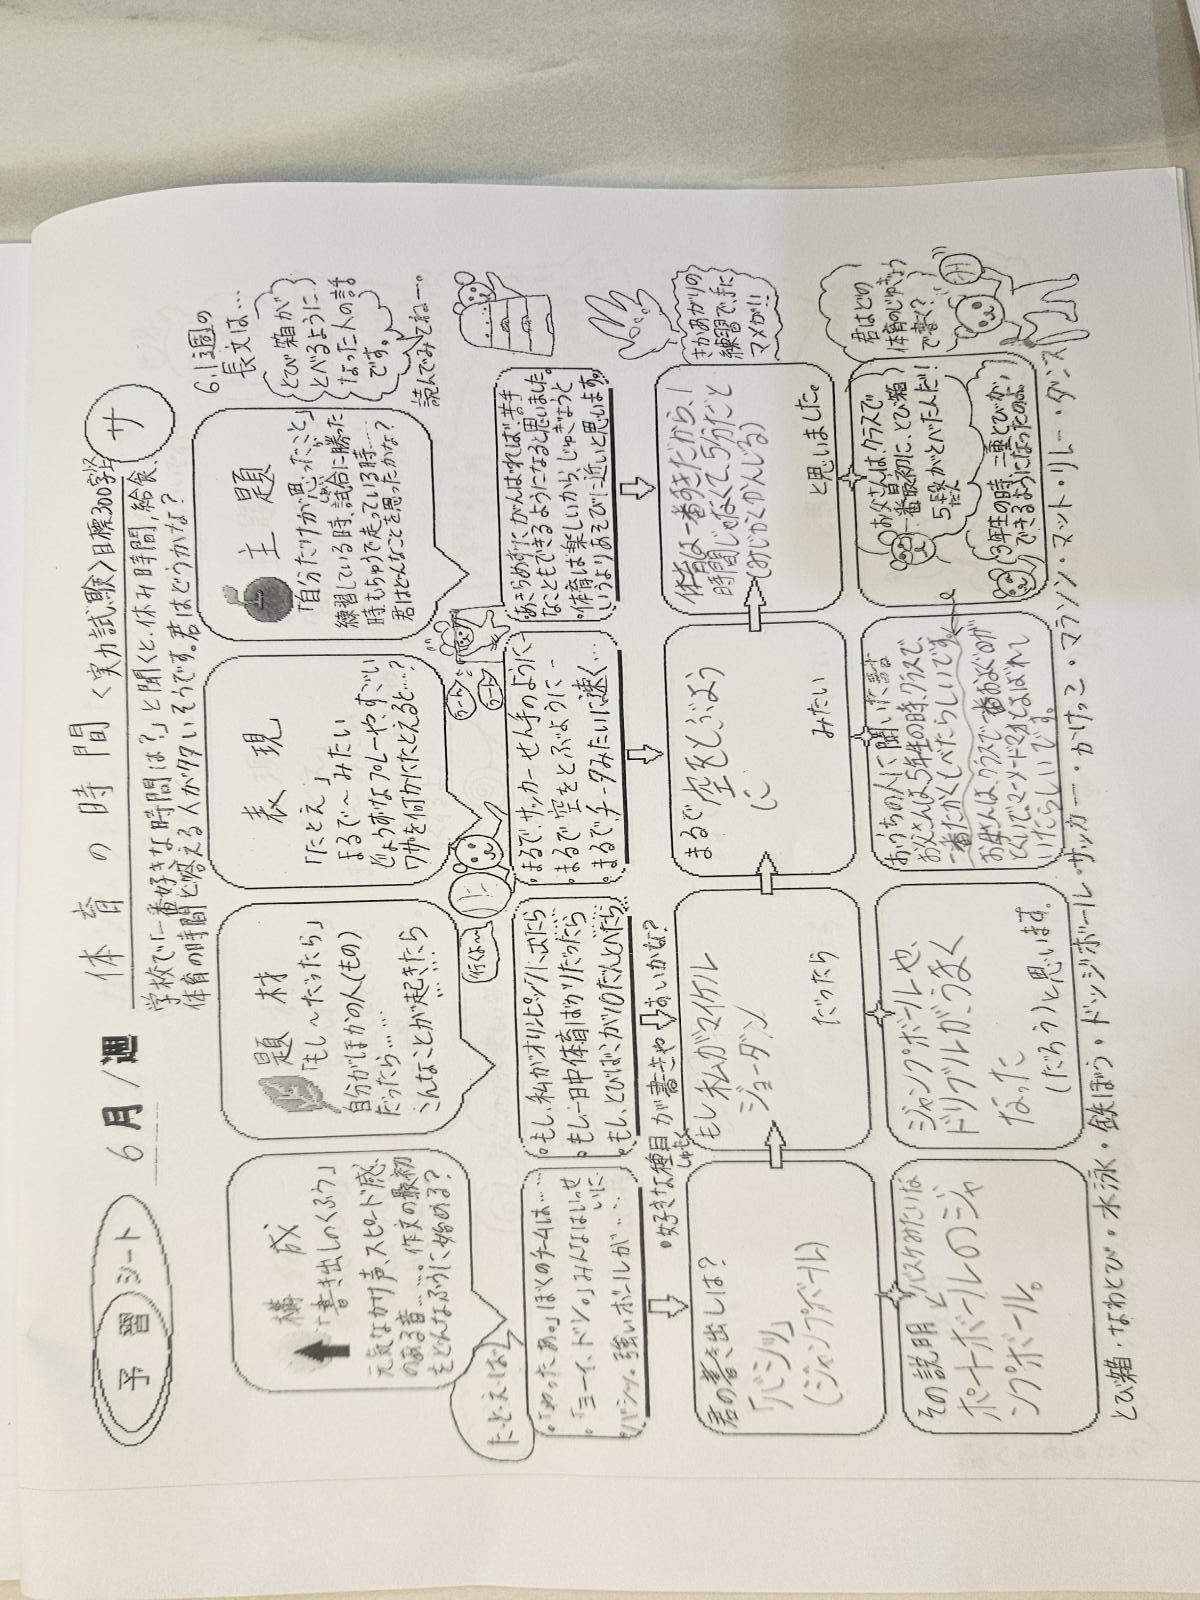 予習シート
6月1週
体育の時間
<実力試験>目標300字以上
サ
学校で「一番好きな時間は?」と聞くと、休み時間、給食、
体育の時間と答える人が多いそうです。君はどうかな?
6.1週の
長文は…
とび箱が
とべるように
なった人の話
です。
読んでみてねー…
構成
「書き出しのくふう」
元気なかけ声、スピード感
のある音……。作文の最初
をどんなふうに始める?
題材
「もし~だったら」
自分がほかの人(もの)
だったら……
こんなことが起きたら
……
表現
「たとえ」
まるで~みたい
じょうずなプレーや、すごい
ワザを何かにたとえると…?
主題
「自分だけが思ったこと」
練習している時、試合に勝った
時、もちゅうで走っている時…
君はどんなことを思ったかな?
たとえば
行くよ~
・「やったあ。」ぼくのチームは……
・「ヨーイ、ドン。」みんなはいっせいに
・バシッ。強いボールが……
・もし、私がオリンピックに出たら
・もし、一日中体育ばかりだったら
・もし、とびばこが10だんとべたら…
・まるで、サッカーせん手のように
・まるで空をとぶように…
・まるで、チータみたいに速く…
・あきらめずにがんばれば、苦手
なこともできるようになると思いました。
・体育は楽しいから、じゅぎょうと
いうよりあそびに近いと思います。
・好きな種目が書きやすいかな?
しゅもく
君の書き出しは?
「バシッ」
(ジャンプボール)
もし私がマイケル
ジョーダン
だったら
まるで
空をとぶよう
に
みたい
体育は一番すきだから、1
時間じゃなくて5分だと
(みじかくかんじる)
と思いました。
きかあがりの
練習で、手に
マメが!!
その説明
バスケみたいな
ポートボールのジャ
ンプボール。
ジャンプボールや、
ドリブルが、うまく
なった
(だろう)と思います。
おうちの人に聞いた話
お父さんは、5年生の時、クラスで、
一番たかくとべたらしいです。
お母さんは、クラスで一番およぐのが
とくいで、マーメードマオとよばれて
いたらしいです。
お父さんは、クラスで
一番最初に、とび箱
5段がとべた人だ!!
3年生の時、二重とびが、
できるようになったのよ。
君はどの
体育のじゅぎょう
で書く?
とび箱・なわとび・水泳・鉄ぼう・ドッジボール・サッカー・かけっこ・マラソン・マット・リレー・ダンス